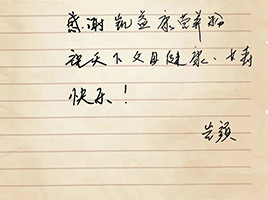 感谢凯益康营养粉
祝天下父母健康、长寿
快乐！
岩頭